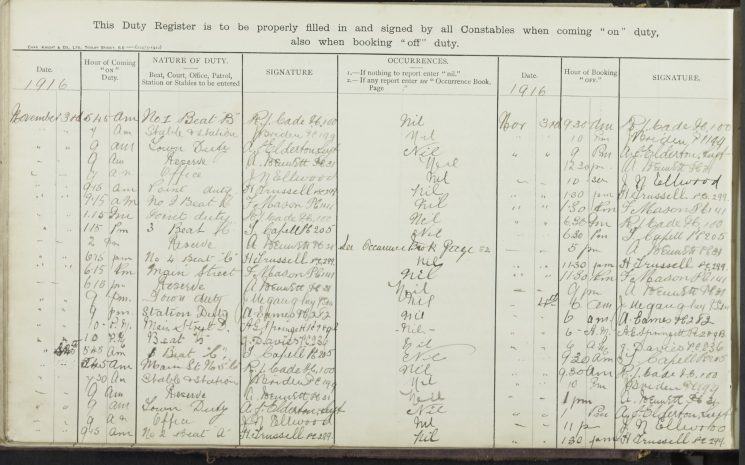 This Duty Register is to be properly filled in and signed by all Constables when coming "on" duty,
also when booking "off" duty.
Date. Hour of Coming "ON" Duty. NATURE OF DUTY. Beat, Court, Office, Patrol, Station or Stables to be entered SIGNATURE OCCURRENCES. 1.—If nothing to report enter "nil." 2.—If any report enter see "Occurrence Book, Page Date. Hour of Booking "OFF." SIGNATURE.
1916 1916
November 3rd 5.45 am No 1 Beat B R J. Cade Pc, 100 Nil Nov 3rd 9.30 Am R J. Cade Pc, 100
7 am Stable & Station J Briden Pc 199 Nil 10 Pm J Briden Pc 199
9 am Town Duty A. F. Elderton, Supt Nil 9 Pm A. F. Elderton, Supt
9 Am Reserve A. Bennett Pc 31 Nil 12.30 pm A Bennett Pc 31
9 am Office J N Ellwood Nil 10 J N Ellwood
9.45 am Point duty H Trussell Pc 299 Nil 1.30 pm H Trussell Pc 299
9.15 am No 2 Beat F. Mason Pc 141 Nil 1.30 Pm F. Mason Pc 141
1.15 Pm Point duty R J Cade Pc, 100 Nil 6.30 Pm R J. Cade Pc, 100
1.15 Pm 3 Beat F. Cafell Pc 205 Nil 6.30 Pm F. Cafell Pc 205
2 Pm Reserve A Bennett Pc 31 See Occurrence Book Page 52 5 pm A Bennett Pc 31
6.45 pm No 4 Beat "C" H Trussell Pc 299 Nil 11.30 pm H Trussell Pc 299
6.15 Pm Main Street F. Mason Pc 141 Nil 11.30 Pm F. Mason Pc 141
6.10 pm Reserve A Bennett Pc 31 Nil 9 pm A Bennett Pc 31
9 pm. Town duty Nil 4th 6 am
9 pm Station Duty A. Eames Pc 252 Nil 6 am A. Eames Pc 252
10 P.M. Main Street Nil 6 A.M.
10 P.M. Beat G. Davis Pc 236 Nil 9 G. Davis Pc 236
5.45 Am 1 Beat F. Cafell Pc 205 Nil 9.30 Am F. Cafell Pc 205
5.45 am Main St R J. Cade Pc, 100 Nil 9.30 am R J. Cade Pc, 100
7.30 Am Stable & Station J Briden Pc 199 Nil 10 Pm J Briden Pc 199
9 Am Reserve A Bennett Pc 31 Nil 1 pm A Bennett Pc 31
9 am Town Duty A. F. Elderton, Supt Nil 1 Pm A. F. Elderton, Supt
9 am Office J N Ellwood Nil 11 p J N Ellwood
9.45 am No 2 Beat A H Trussell Pc 299 Nil 1.30 pm H Trussell Pc 299